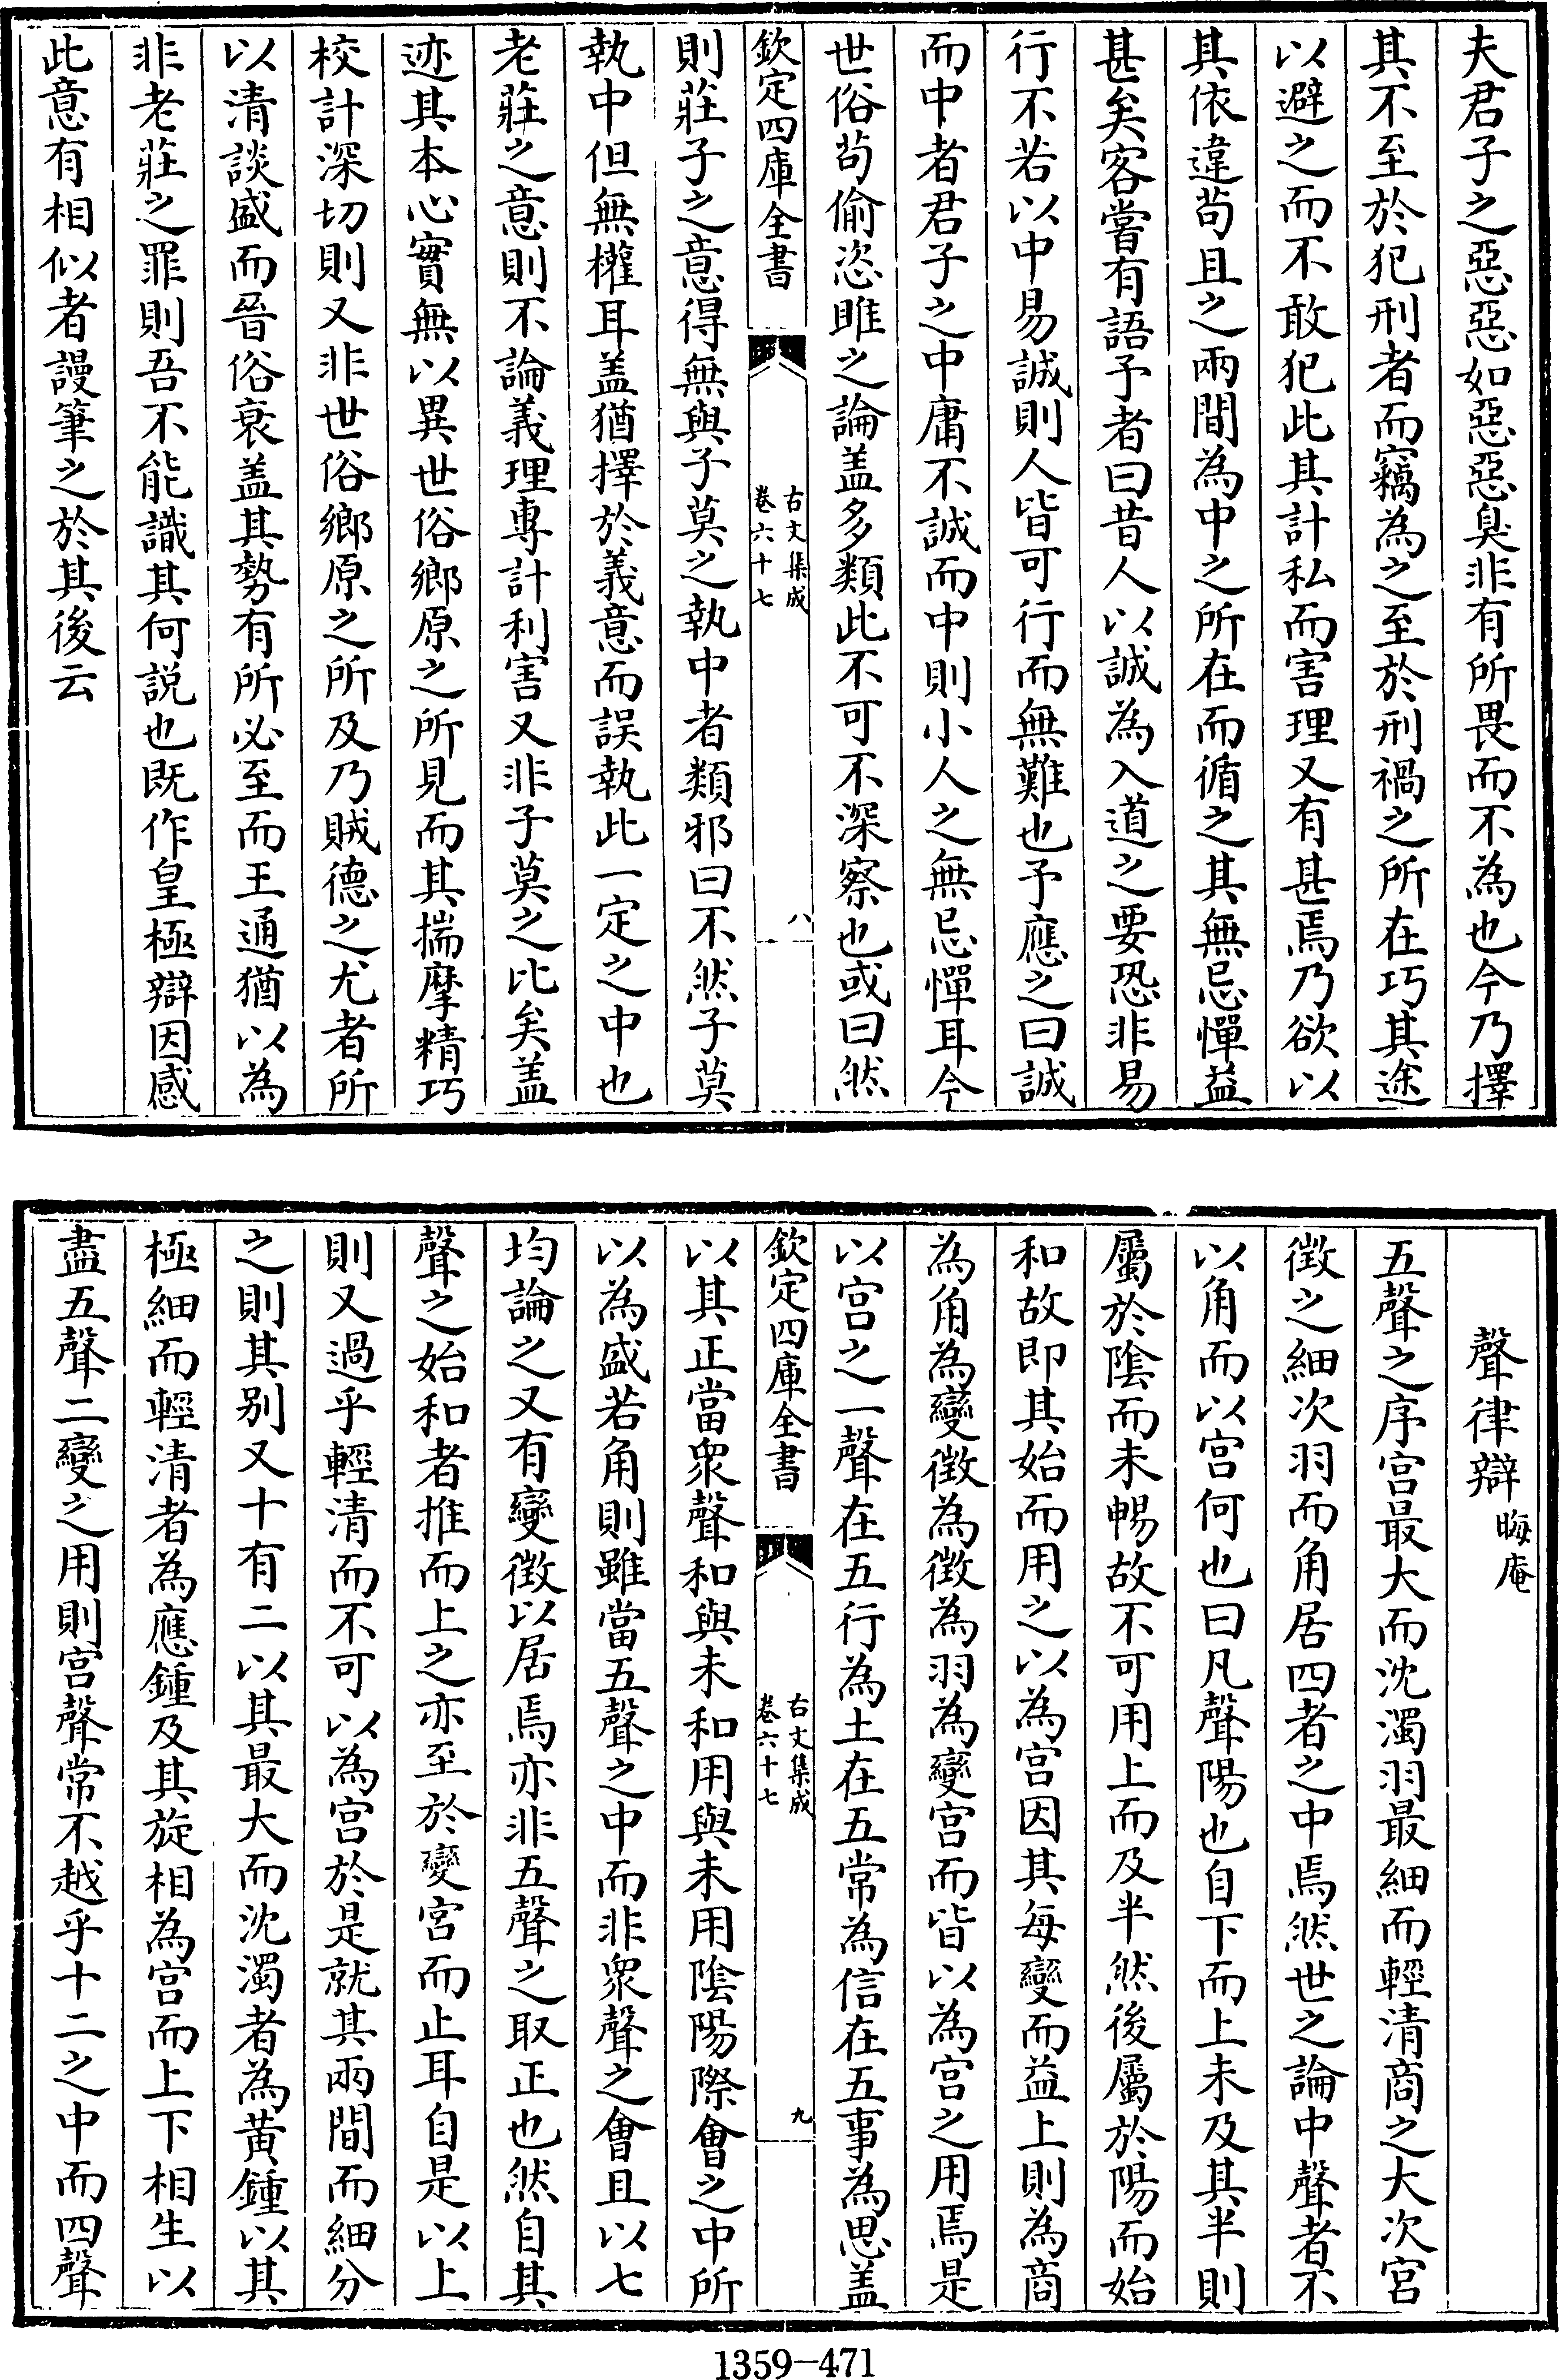 夫君子之惡惡如惡惡臭非有所畏而不為也今乃擇
其不至於犯刑者而竊為之至於刑禍之所在巧其途
以避之而不敢犯此其計私而害理又有甚焉乃欲以
其依違苟且之兩間為中之所在而循之其無忌憚益
甚矣客嘗有語予者曰昔人以誠為入道之要恐非易
行不若以中易誠則人皆可行而無難也予應之曰誠
而中者君子之中庸不誠而中則小人之無忌憚耳今
世俗苟偷恣睢之論盖多類此不可不深察也或曰然
欽定四庫全書
古文集成
卷六十七
八
則莊子之意得無與子莫之執中者類邪曰不然子莫
執中但無權耳盖猶擇於義意而誤執此一定之中也
老莊之意則不論義理專計利害又非子莫之比矣盖
迹其本心實無以異世俗鄉原之所見而其揣摩精巧
校計深切則又非世俗鄉原之所及乃賊德之尤者所
以清談盛而晉俗衰盖其勢有所必至而王通猶以為
非老莊之罪則吾不能識其何説也既作皇極辯因感
此意有相似者謾筆之於其後云
聲律辯
晦庵
五聲之序宫最大而沈濁羽最細而輕清商之大次宫
徵之細次羽而角居四者之中焉然世之論中聲者不
以角而以宫何也曰凡聲陽也自下而上未及其半則
屬於陰而未暢故不可用上而及半然後屬於陽而始
和故即其始而用之以為宫因其每變而益上則為商
為角為變徵為徵為羽為變宫而皆以為宫之用焉是
以宫之一聲在五行為土在五常為信在五事為思盖
欽定四庫全書
古文集成
卷六十七
九
以其正當衆聲和與未和用與未用陰陽際會之中所
以為盛若角則雖當五聲之中而非衆聲之會且以七
均論之又有變徵以居焉亦非五聲之取正也然自其
聲之始和者推而上之亦至於變宫而止耳自是以上
則又過乎輕清而不可以為宫於是就其兩間而細分
之則其别又十有二以其最大而沈濁者為黄鍾以其
極細而輕清者為應鍾及其旋相為宫而上下相生以
盡五聲二變之用則宫聲常不越乎十二之中而四聲
1359-471